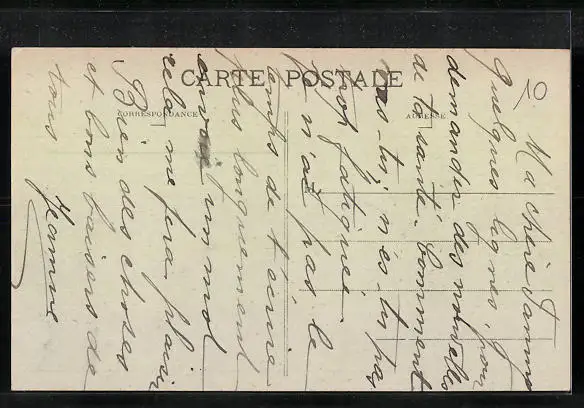 10
CARTE POSTALE
CORRESPONDANCE
ADRESSE
Ma chère Jeanne
Quelques lignes pour
demander des nouvelles
de ta santé. Comment
vas-tu, n'es-tu pas
trop fatiguée.
Je n'ai pas le
temps de t'écrire
plus longuement
envoie un mot
cela me fera plaisir
Bien des choses
et bons baisers de
tous
Jeanne